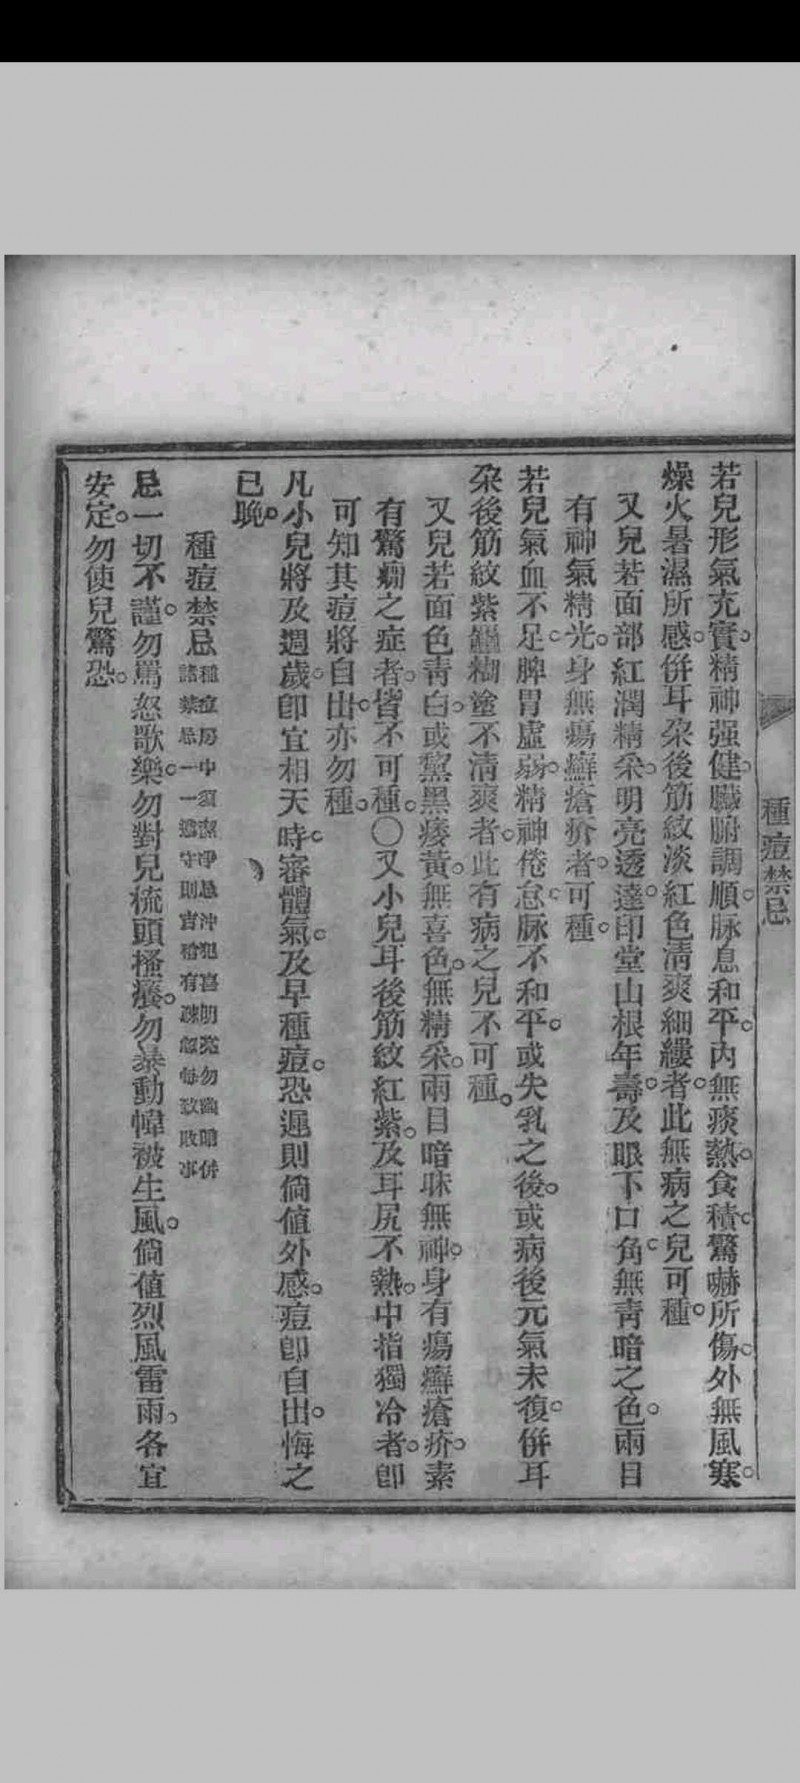 種痘禁忌
若兒形氣充實。精神强健。臟腑調順。脉息和平。內無痰熱。食積驚嚇所傷。外無風寒。
燥火暑濕所感。併耳朶後筋紋淡紅色。淸爽細縷者。此無病之兒可種。
又兒若面部紅潤精采。明亮透達。印堂山根年壽。及眼下口角。無靑暗之色。兩目
有神氣精光。身無瘍癬瘡疥者。可種。
若兒氣血不足。脾胃虛弱。精神倦怠。脉不和平。或失乳之後。或病後元氣未復。併耳
朶後筋紋紫糊塗不淸爽者。此有病之兒不可種。
又兒若面色靑白。或黧黑痿黃。無喜色。無精采。兩目暗昧無神。身有瘍癬瘡疥。素
有驚癇之症者。皆不可種。〇又小兒耳後筋紋紅紫。及耳尻不熱。中指獨冷者。卽
可知其痘將自出。亦勿種。
凡小兒將及週歲。卽宜相天時。審體氣。及早種痘。恐遲則倘値外感。痘卽自出。悔之
已晚。
種痘禁忌
種痘房中須潔淨忌沖犯喜明亮勿幽暗併
諸禁忌一一遵守則吉稍有疎忽每致敗事
忌一切不謹。勿駡怒歌樂。勿對兒梳頭搔癢。勿暴動幃被生風。倘値烈風雷雨。各宜
安定。勿使兒驚恐。